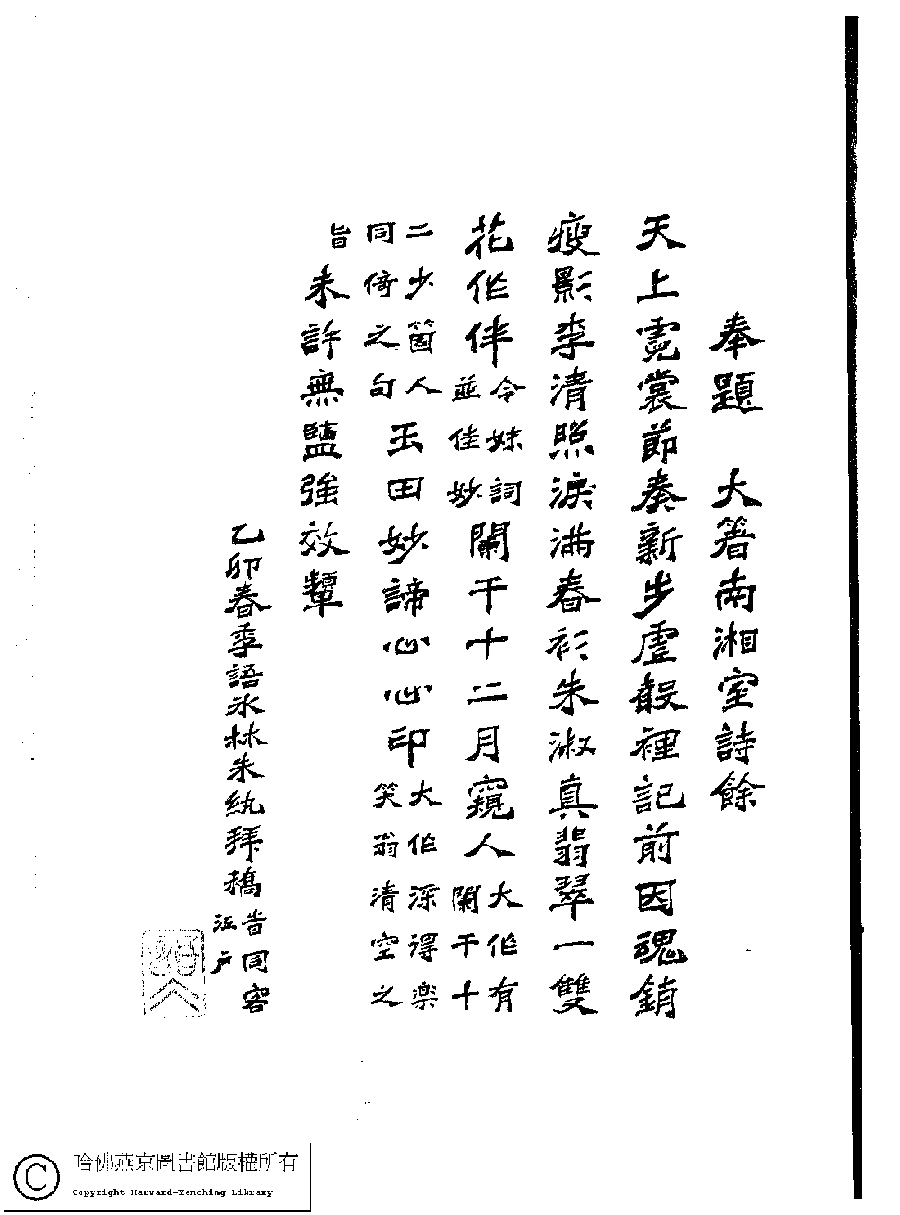 奉題　大箸南湘室詩餘
天上霓裳節奏新步虛殸裡記前因魂銷
瘦影李清照淚滿春衫朱淑真翡翠一雙
花作伴令妹詞並佳妙闌干十二月窺人大作有闌干十
二少箇人同倚之句玉田妙諦心心印大作深得樂笑翁清空之
旨未許無鹽強效顰
乙卯春季語冰林朱紈拜稿旹同客江戶
哈佛燕京圖書館版權所有
Copyright Harvard-Yenching Library